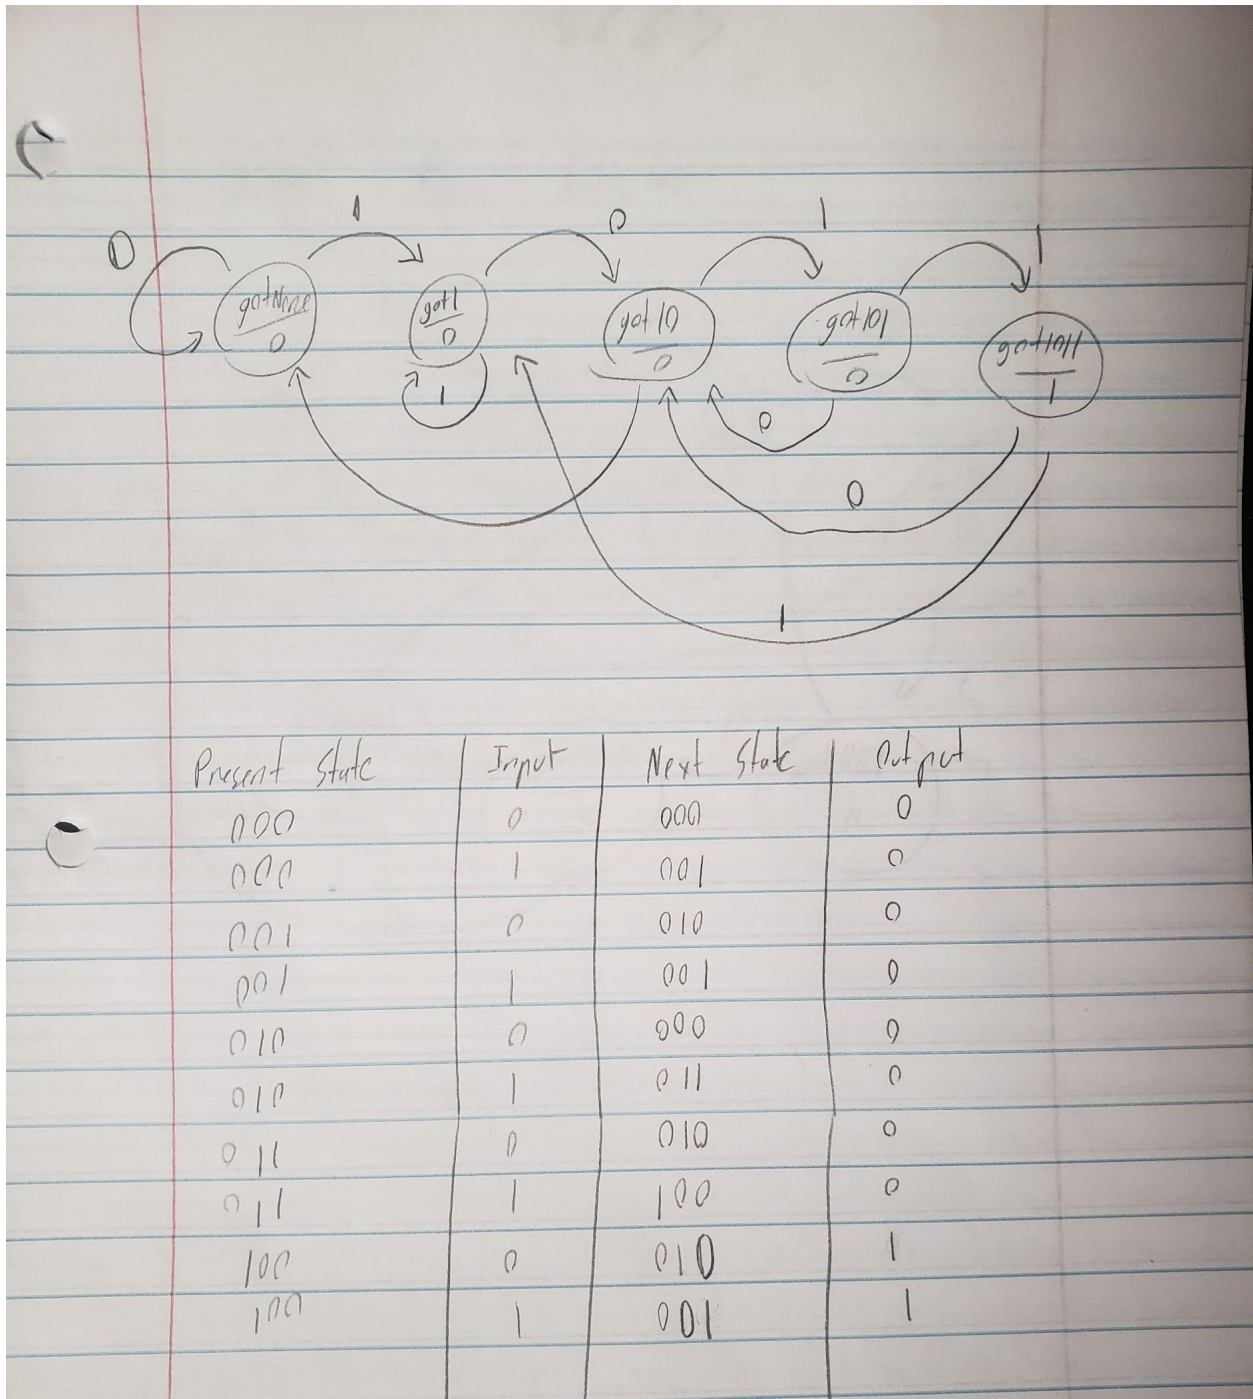 1 0 1 1
0
gotNone got1 got10 got101 got1011
0 0 0 0 1
1 0
0
1
Present State Input Next State Output
000 0 000 0
000 1 001 0
001 0 010 0
001 1 001 0
010 0 000 0
010 1 011 0
011 0 010 0
011 1 100 0
100 0 010 1
100 1 001 1